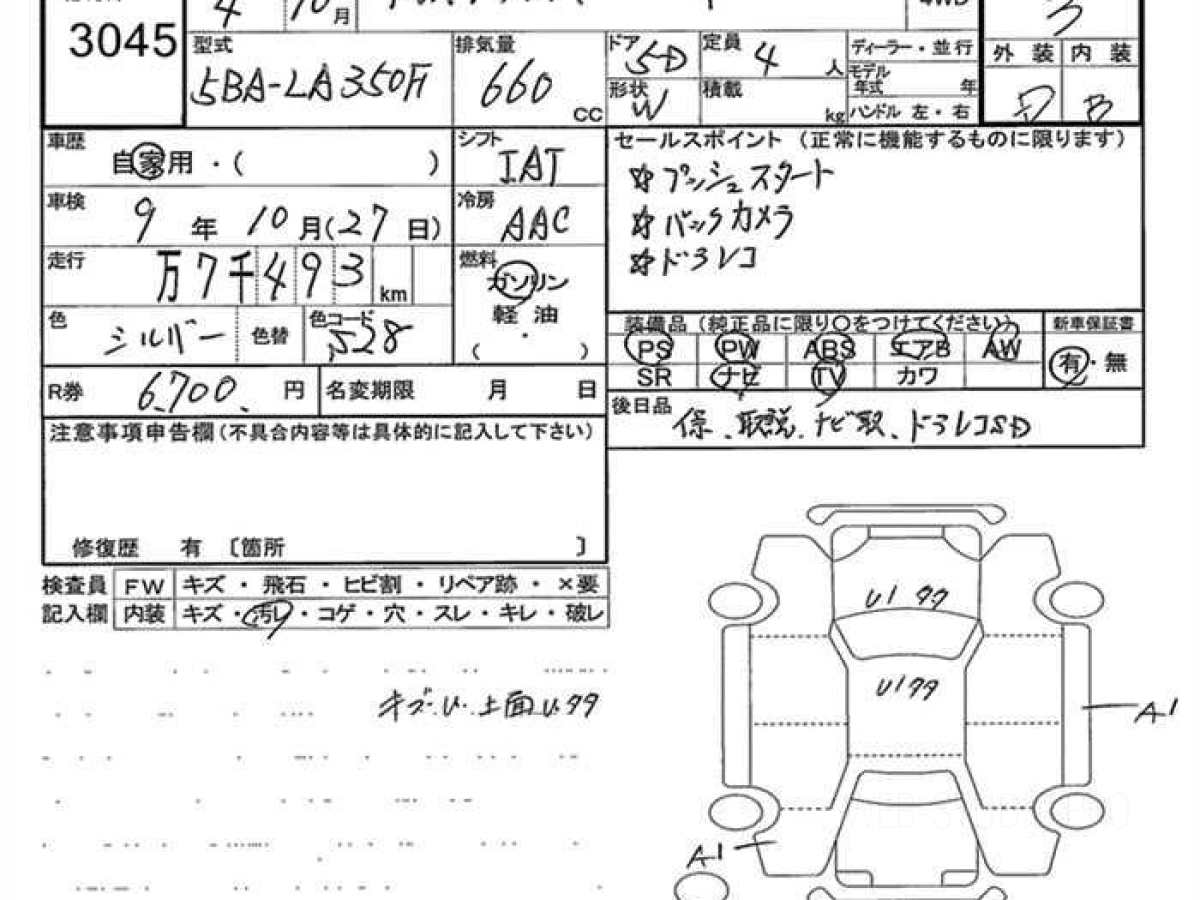 3045
4 10月
4WD
3
型式
5BA-LA350F
排気量
660
CC
ドア 5D
定員 4 人
形状 W
積載 kg
ディーラー・並行
モデル年式 年
ハンドル 左・右
外装 内装
D B
車歴
自家用・( )
シフト
IAT
車検
9年10月(27日)
冷房
AAC
走行
万7千493 km
燃料
ガソリン
軽油
・
( )
色
シルバー
色替
色コード
S28
R券
6,700.円
名変期限 月 日
セールスポイント(正常に機能するものに限ります)
☆プッシュスタート
☆バックカメラ
☆ドラレコ
装備品(純正品に限り○をつけてください)
PS PW ABS エアB AW
SR ナビ TV カワ
新車保証書
有・無
後日品
保、取説、ナビ取、ドラレコSD
注意事項申告欄(不具合内容等は具体的に記入して下さい)
修復歴 有 〔箇所 〕
検査員 FW キズ・飛石・ヒビ割・リペア跡・×要
記入欄 内装 キズ・汚レ・コゲ・穴・スレ・キレ・破レ
キズ・U・上面Uタタ
U1タタ
U1タタ
A1
A1